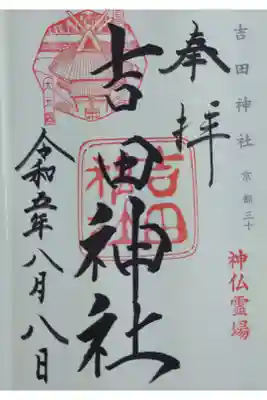 吉田神社 京都三十
神仏霊場
奉拝
吉田神社
吉田神社
令和五年八月八日